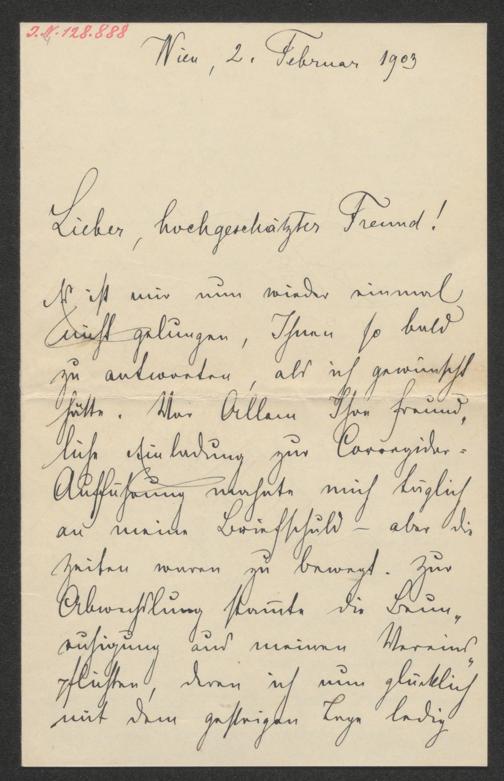 J.N. 128.888
Wien, 2. Februar 1903
Lieber, hochgeschätzter Freund!
Es ist mir nun wieder einmal
nicht gelungen, Ihnen so bald
zu antworten, als ich gewünscht
hätte. Vor Allem Ihre freund„
liche Einladung zur Corregidor=
Aufführung mahnte mich täglich
an meine Briefschuld – aber die
Zeiten waren zu bewegt. Zur
Abwechslung stam̅te die Beun„
ruhigung aus meinen Vereins„
pflichten, deren ich nun glücklich
mit dem gestrigen Tage ledig